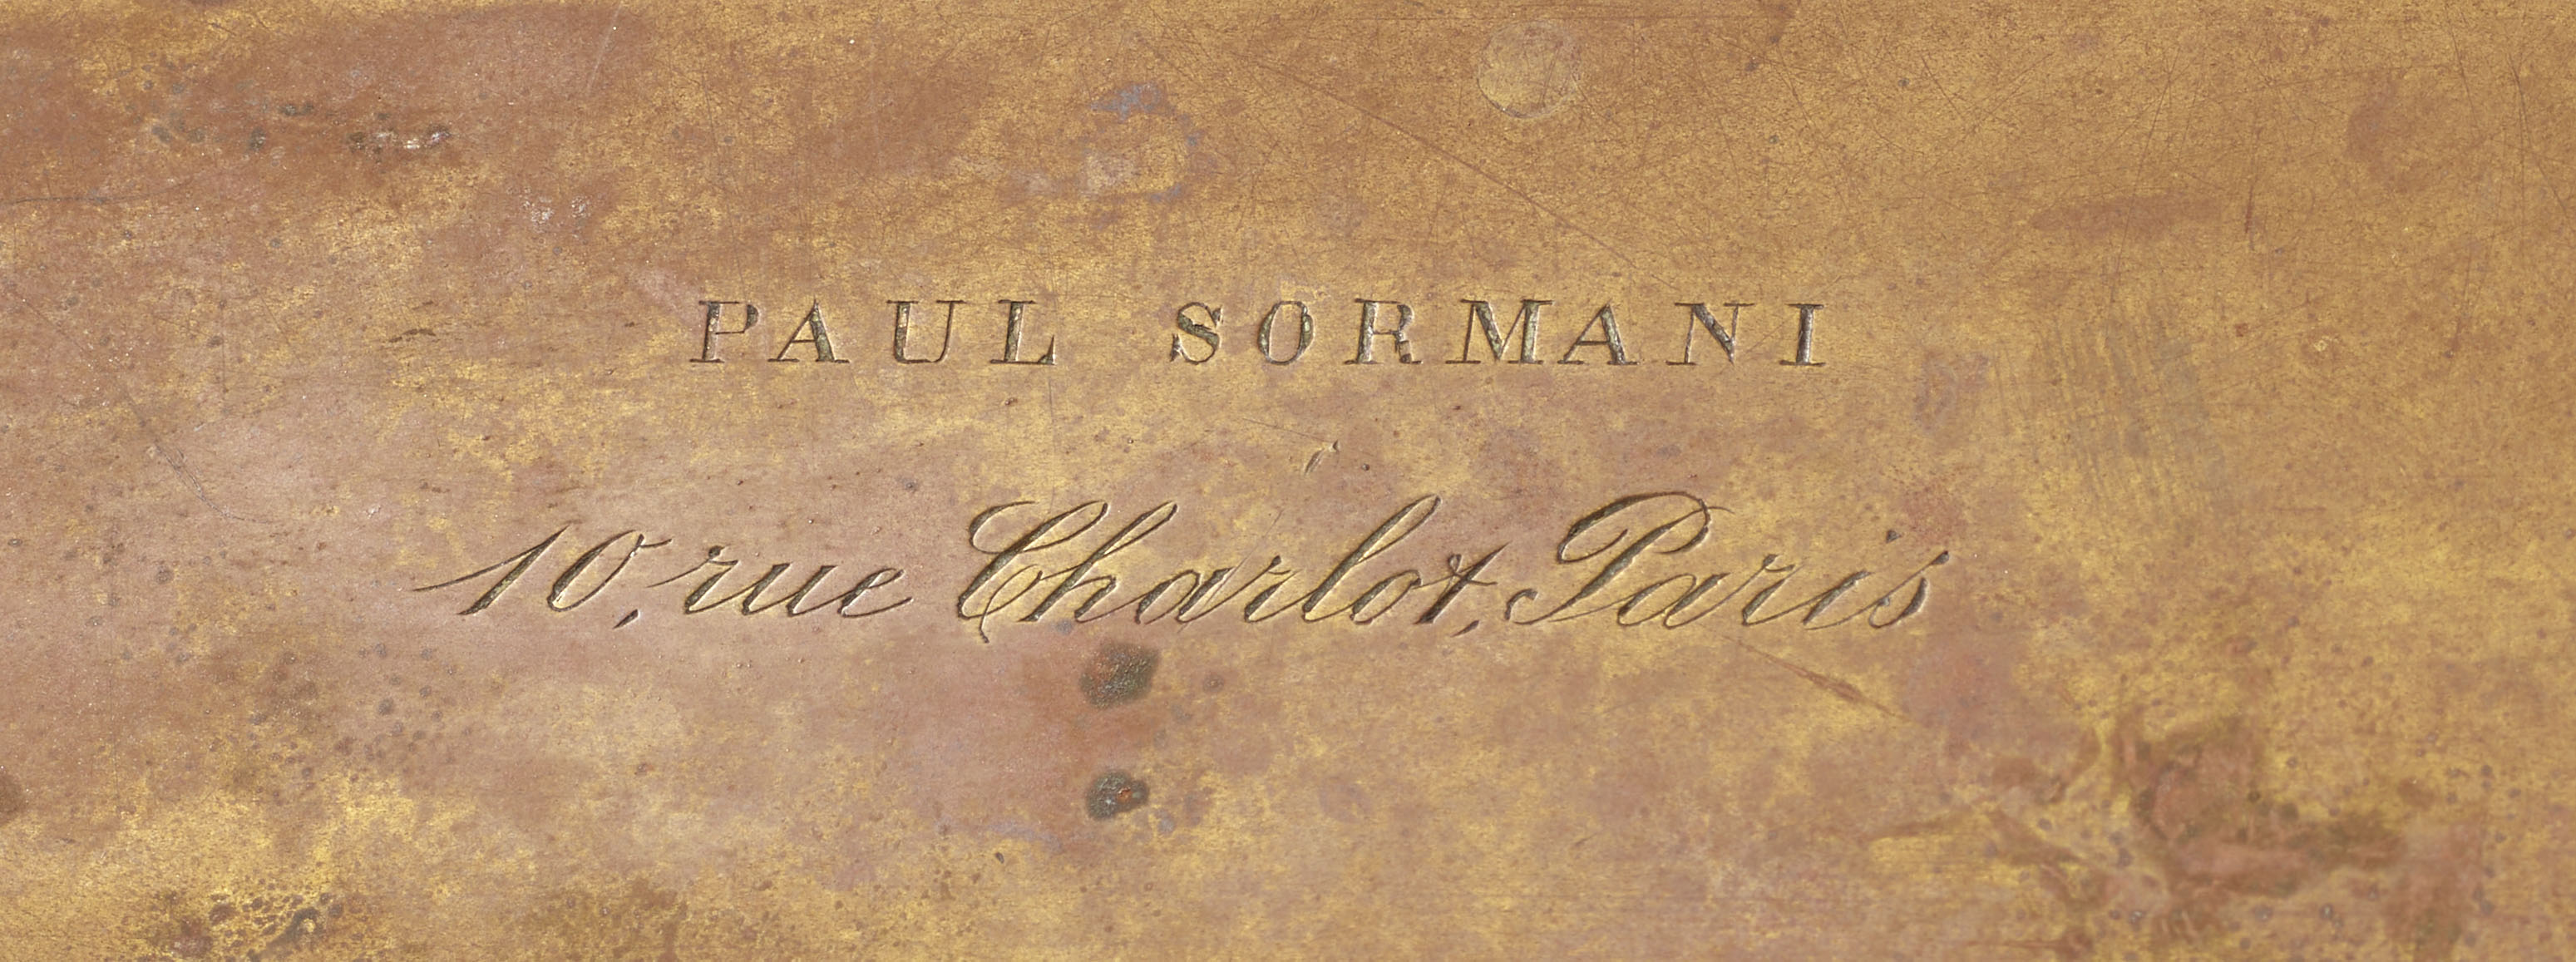 PAUL SORMANI
10, rue Charlot, Paris